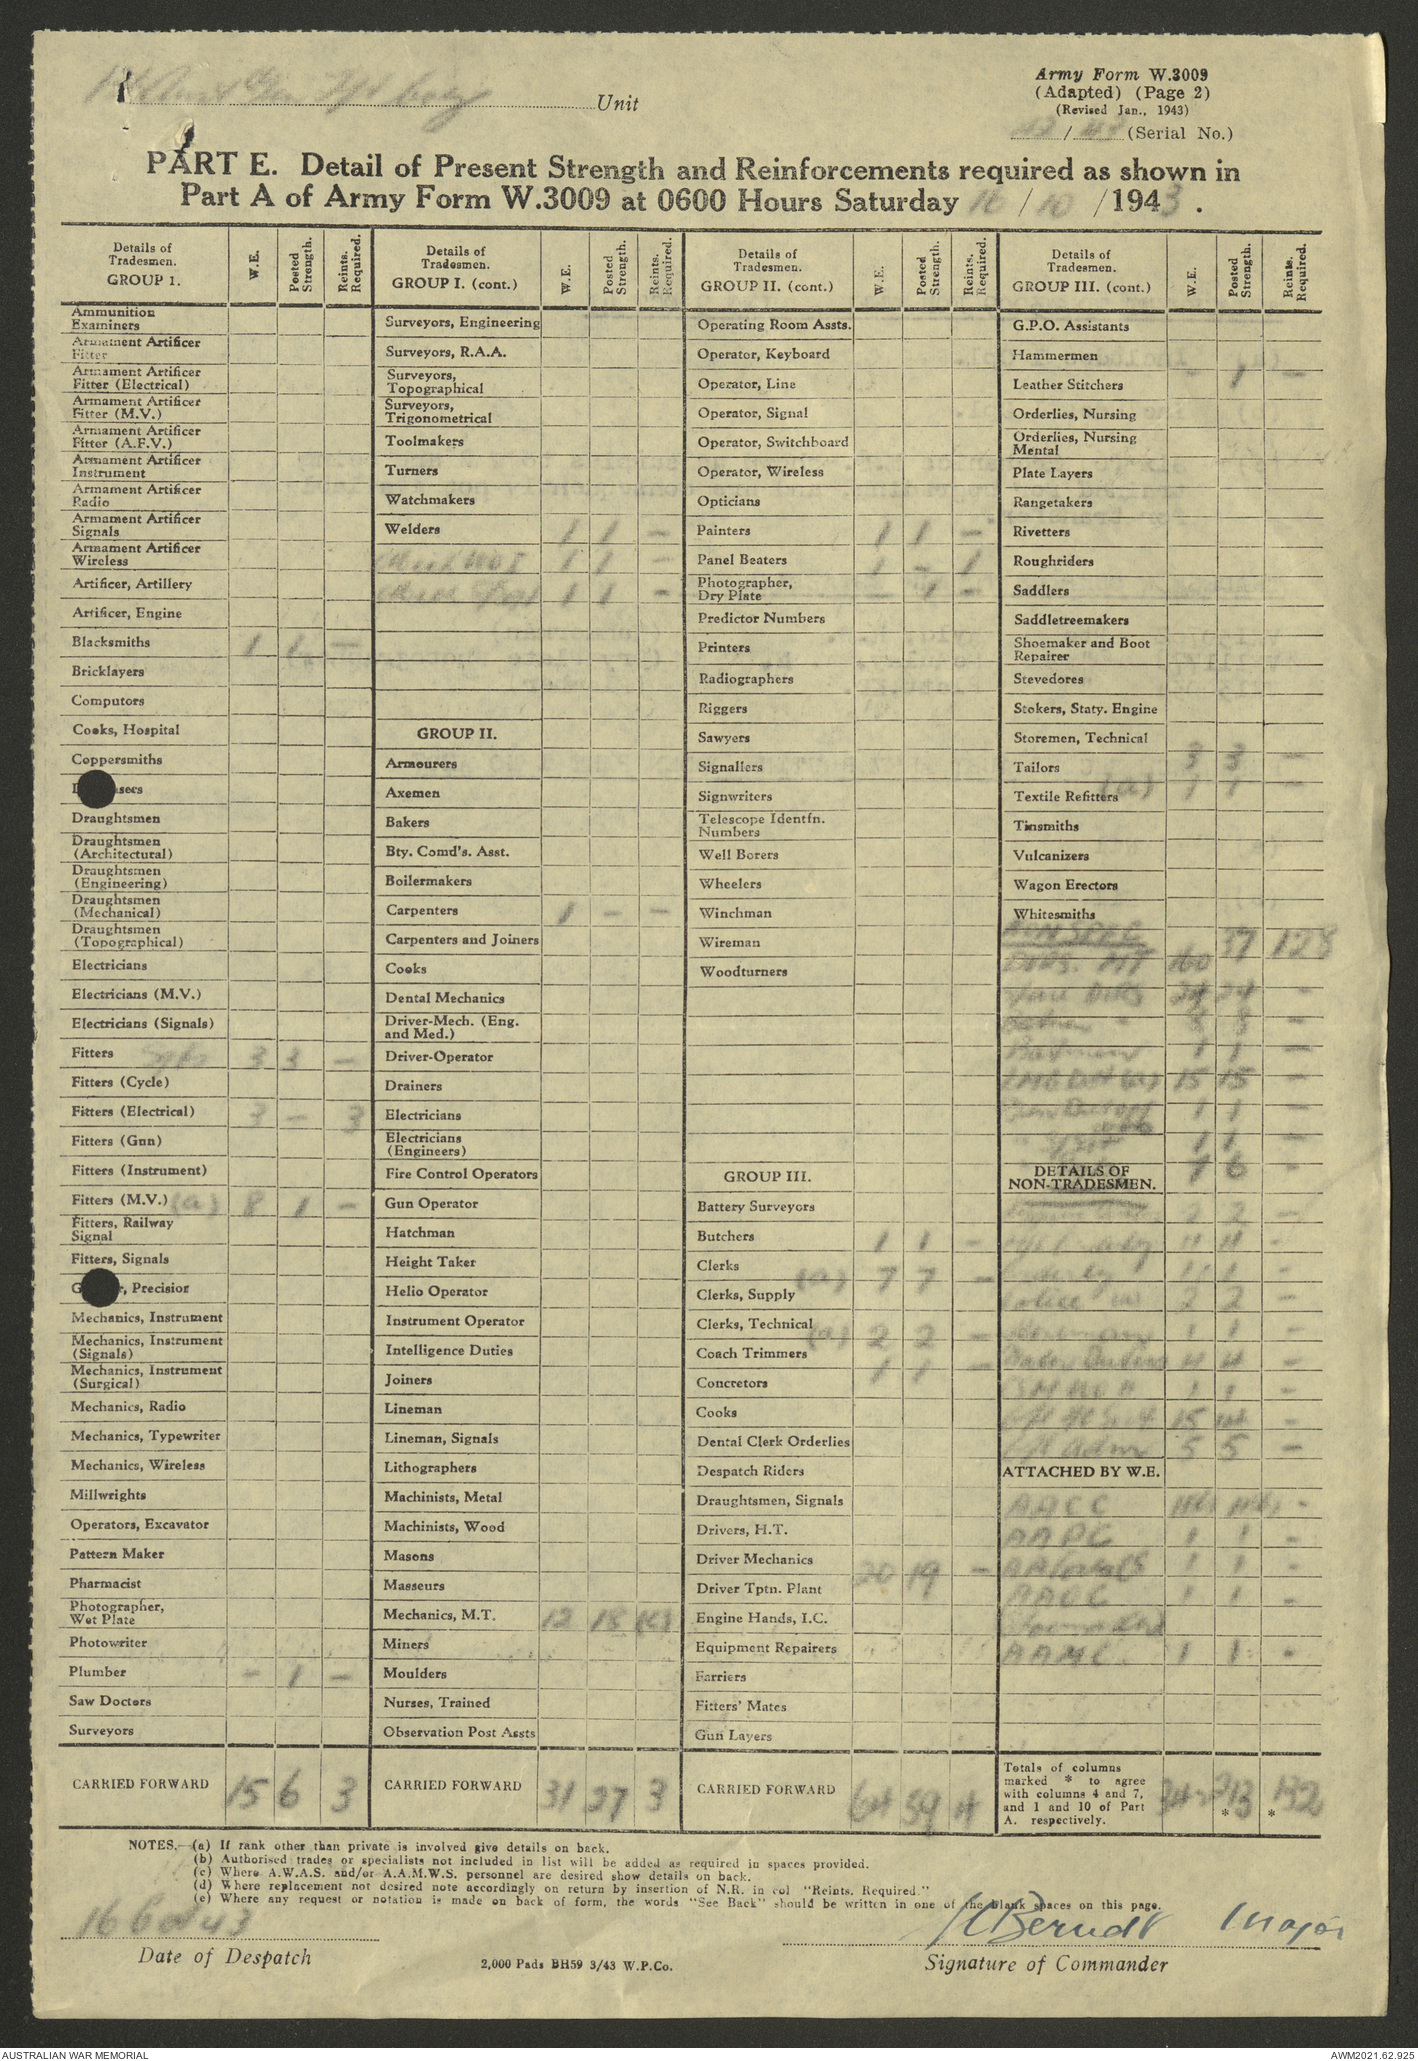 Army Form W.3009
(Adapted) (Page 2)
(Revised Jan., 1943)
Unit
/ (Serial No.)
PART E. Detail of Present Strength and Reinforcements required as shown in
Part A of Army Form W.3009 at 0600 Hours Saturday 16 / 10 /1943.
Details of Tradesmen. GROUP 1. W.E. Posted Strength. Reints. Required.
Ammunition Examiners
Armament Artificer Fitter
Armament Artificer Fitter (Electrical)
Armament Artificer Fitter (M.V.)
Armament Artificer Fitter (A.F.V.)
Armament Artificer Instrument
Armament Artificer Radio
Armament Artificer Signals
Armament Artificer Wireless
Artificer, Artillery
Artificer, Engine
Blacksmiths 1 1 —
Bricklayers
Computors
Cooks, Hospital
Coppersmiths
Draughtsmen
Draughtsmen (Architectural)
Draughtsmen (Engineering)
Draughtsmen (Mechanical)
Draughtsmen (Topographical)
Electricians
Electricians (M.V.)
Electricians (Signals)
Fitters 3 3 —
Fitters (Cycle)
Fitters (Electrical) 3 — 3
Fitters (Gun)
Fitters (Instrument)
Fitters (M.V.) (a) 8 1 —
Fitters, Railway Signal
Fitters, Signals
, Precision
Mechanics, Instrument
Mechanics, Instrument (Signals)
Mechanics, Instrument (Surgical)
Mechanics, Radio
Mechanics, Typewriter
Mechanics, Wireless
Millwrights
Operators, Excavator
Pattern Maker
Pharmacist
Photographer, Wet Plate
Photowriter
Plumber — 1 —
Saw Doctors
Surveyors
CARRIED FORWARD 15 6 3
Details of Tradesmen. GROUP I. (cont.) W.E. Posted Strength. Reints. Required.
Surveyors, Engineering
Surveyors, R.A.A.
Surveyors, Topographical
Surveyors, Trigonometrical
Toolmakers
Turners
Watchmakers
Welders 1 1 —
1 1 —
1 1 —
GROUP II.
Armourers
Axemen
Bakers
Bty. Comd's. Asst.
Boilermakers
Carpenters 1 — —
Carpenters and Joiners
Cooks
Dental Mechanics
Driver-Mech. (Eng. and Med.)
Driver-Operator
Drainers
Electricians
Electricians (Engineers)
Fire Control Operators
Gun Operator
Hatchman
Height Taker
Helio Operator
Instrument Operator
Intelligence Duties
Joiners
Lineman
Lineman, Signals
Lithographers
Machinists, Metal
Machinists, Wood
Masons
Masseurs
Mechanics, M.T. 12 18
Miners
Moulders
Nurses, Trained
Observation Post Assts
CARRIED FORWARD 31 27 3
Details of Tradesmen. GROUP II. (cont.) W.E. Posted Strength. Reints. Required.
Operating Room Assts.
Operator, Keyboard
Operator, Line
Operator, Signal
Operator, Switchboard
Operator, Wireless
Opticians
Painters 1 1 —
Panel Beaters 1 — 1
Photographer, Dry Plate — 1 —
Predictor Numbers
Printers
Radiographers
Riggers
Sawyers
Signallers
Signwriters
Telescope Identfn. Numbers
Well Borers
Wheelers
Winchman
Wireman
Woodturners
GROUP III.
Battery Surveyors
Butchers 1 1 —
Clerks (a) 7 7 —
Clerks, Supply
Clerks, Technical (a) 2 2 —
Coach Trimmers 1 1 —
Concretors
Cooks
Dental Clerk Orderlies
Despatch Riders
Draughtsmen, Signals
Drivers, H.T.
Driver Mechanics 20 19 —
Driver Tptn. Plant
Engine Hands, I.C.
Equipment Repairers
Farriers
Fitters' Mates
Gun Layers
CARRIED FORWARD 64 59 4
Details of Tradesmen. GROUP III. (cont.) W.E. Posted Strength. Reints. Required.
G.P.O. Assistants
Hammermen - 1 —
Leather Stitchers
Orderlies, Nursing
Orderlies, Nursing Mental
Plate Layers
Rangetakers
Rivetters
Roughriders
Saddlers
Saddletreemakers
Shoemaker and Boot Repairer
Stevedores
Stokers, Staty. Engine
Storemen, Technical 3 3 —
Tailors
Textile Refitters (a) 1 1 —
Tinsmiths
Vulcanizers
Wagon Erectors
Whitesmiths
NON SPEC
Dvrs. MT 160 37 128
24 24 -
8 8 —
Batmen 1 1 —
15 15 —
1 1 —
1 1 —
7 6 -
DETAILS OF NON-TRADESMEN.
2 2 —
4 4 -
1 1 -
2 2 —
1 1 —
4 4 —
1 1 —
15 14 -
5 5 —
ATTACHED BY W.E.
AACC
AAPC 1 1 -
1 1 -
AAOC 1 1 -
AAMC. 1 1 -
Totals of columns marked * to agree with columns 4 and 7, and 1 and 10 of Part A. respectively. 342 213 * 132 *
NOTES.—(a) If rank other than private is involved give details on back.
(b) Authorised trades or specialists not included in list will be added as required in spaces provided.
(c) Where A.W.A.S. and/or A.A.M.W.S. personnel are desired show details on back.
(d) Where replacement not desired note accordingly on return by insertion of N.R. in col "Reints. Required."
(e) Where any request or notation is made on back of form, the words "See Back" should be written in one of the blank spaces on this page.
16 Oct 43
Berndt Major
Date of Despatch
2,000 Pads BH59 3/43 W.P.Co.
Signature of Commander
AUSTRALIAN WAR MEMORIAL
AWM2021.62.925